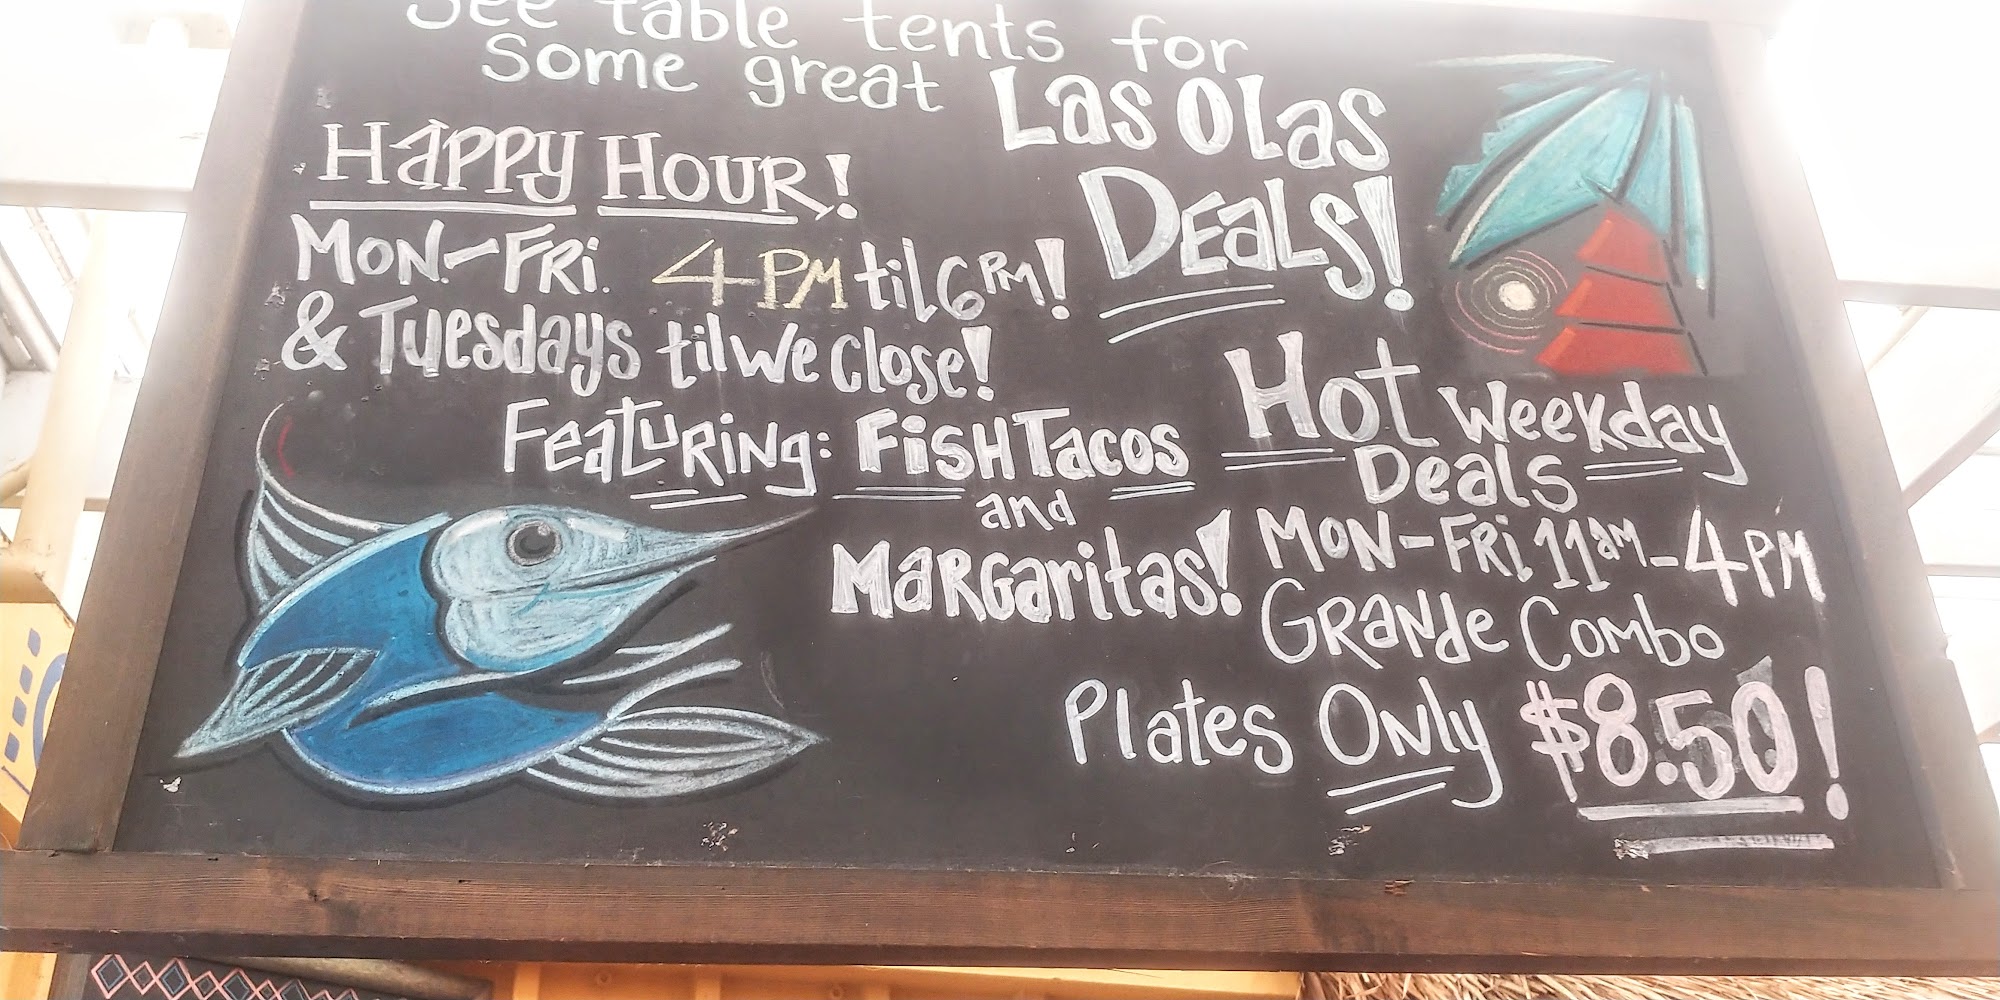 See table tents for
some great Las Olas
Deals!
Happy Hour!
Mon.-Fri. 4PM til 6PM!
& Tuesdays til we close!
Featuring: Fish Tacos
and
Margaritas!
Hot Weekday
Deals
Mon-Fri 11am-4PM
Grande Combo
Plates Only $8.50!